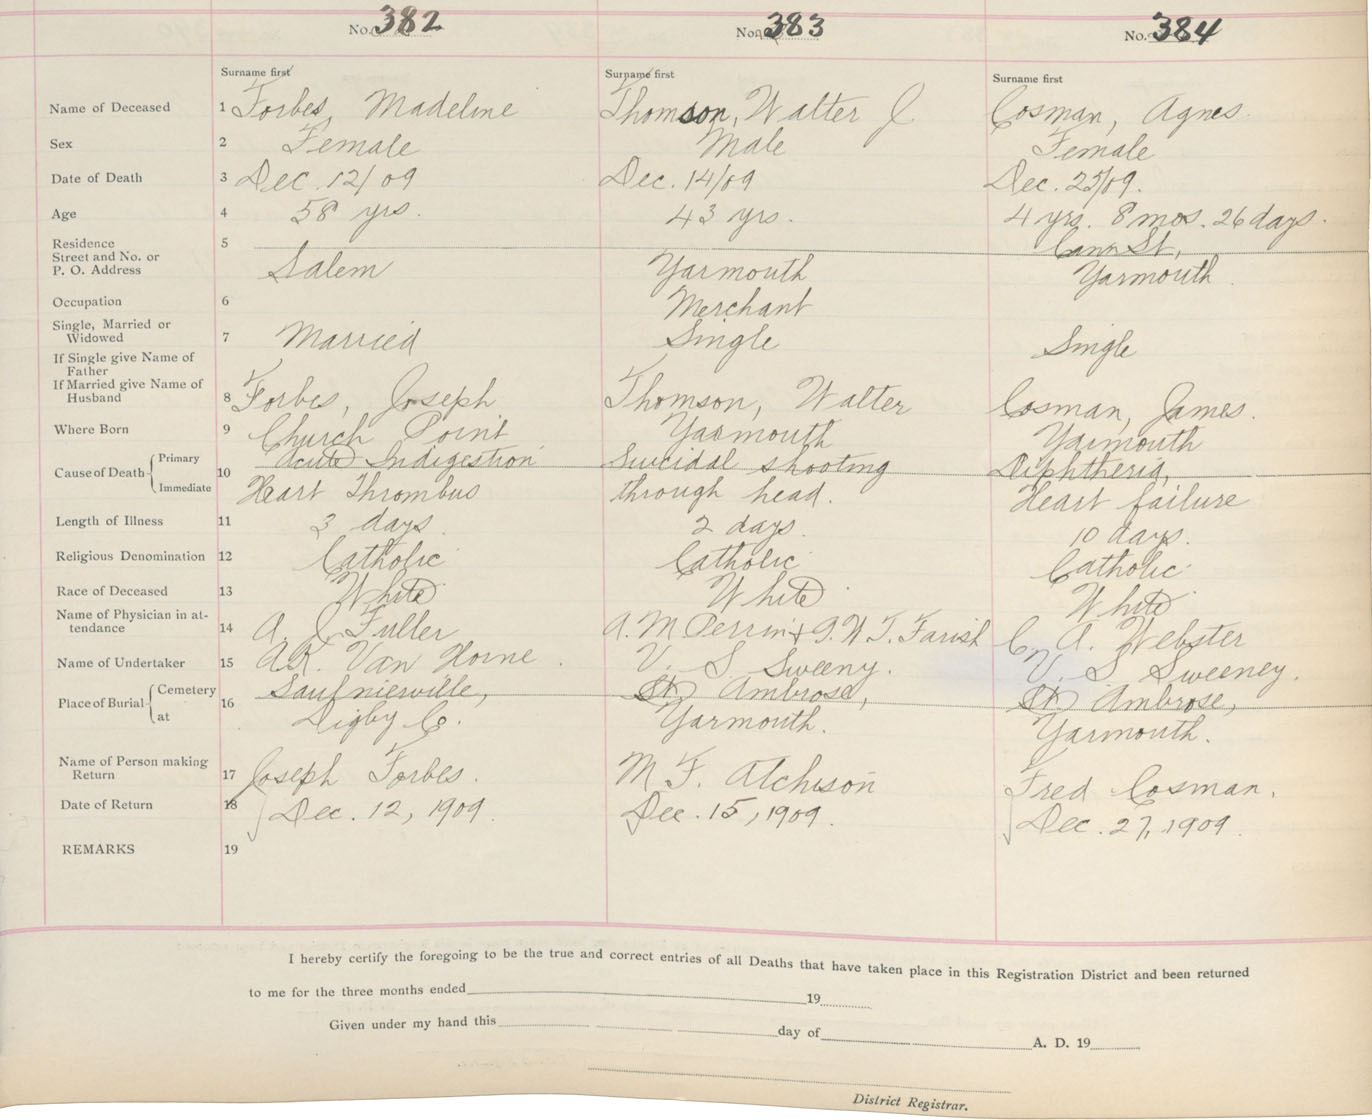 No. 382 No. 383 No. 384
Surname first Surname first Surname first
Name of Deceased 1 Forbes, Madeline Thomson, Walter J Cosman, Agnes.
Sex 2 Female Male Female
Date of Death 3 Dec. 12/09 Dec. 14/09 Dec. 25/09.
Age 4 58 yrs. 43 yrs. 4 yrs. 8 mos. 26 days.
Residence 5 Cann St,
Street and No. or
P. O. Address Salem Yarmouth Yarmouth.
Occupation 6 Merchant
Single, Married or
Widowed 7 Married Single Single
If Single give Name of
Father
If Married give Name of
Husband 8 Forbes, Joseph Thomson, Walter Cosman, James.
Where Born 9 Church Point Yarmouth Yarmouth
Cause of Death Primary 10 Acute Indigestion Suicidal shooting Diphtheria,
Immediate Heart Thrombus through head. Heart failure
Length of Illness 11 3 days 2 days. 10 days.
Religious Denomination 12 Catholic Catholic Catholic
Race of Deceased 13 White White White
Name of Physician in at-
tendance 14 A. J. Fuller A. M Perrin & G. W. T. Farish C. A. Webster
Name of Undertaker 15 A.R. Van Horne. V. S. Sweeny. V. S Sweeney.
Place of Burial Cemetery 16 Saulnierville, St Ambrose, St Ambrose,
at Digby C. Yarmouth. Yarmouth.
Name of Person making
Return 17 Joseph Forbes. M. F. Atchison Fred Cosman.
Date of Return 18 Dec. 12, 1909. Dec. 15, 1909. Dec. 27, 1909.
REMARKS 19
I hereby certify the foregoing to be the true and correct entries of all Deaths that have taken place in this Registration District and been returned
to me for the three months ended 19
Given under my hand this day of A. D. 19
District Registrar.